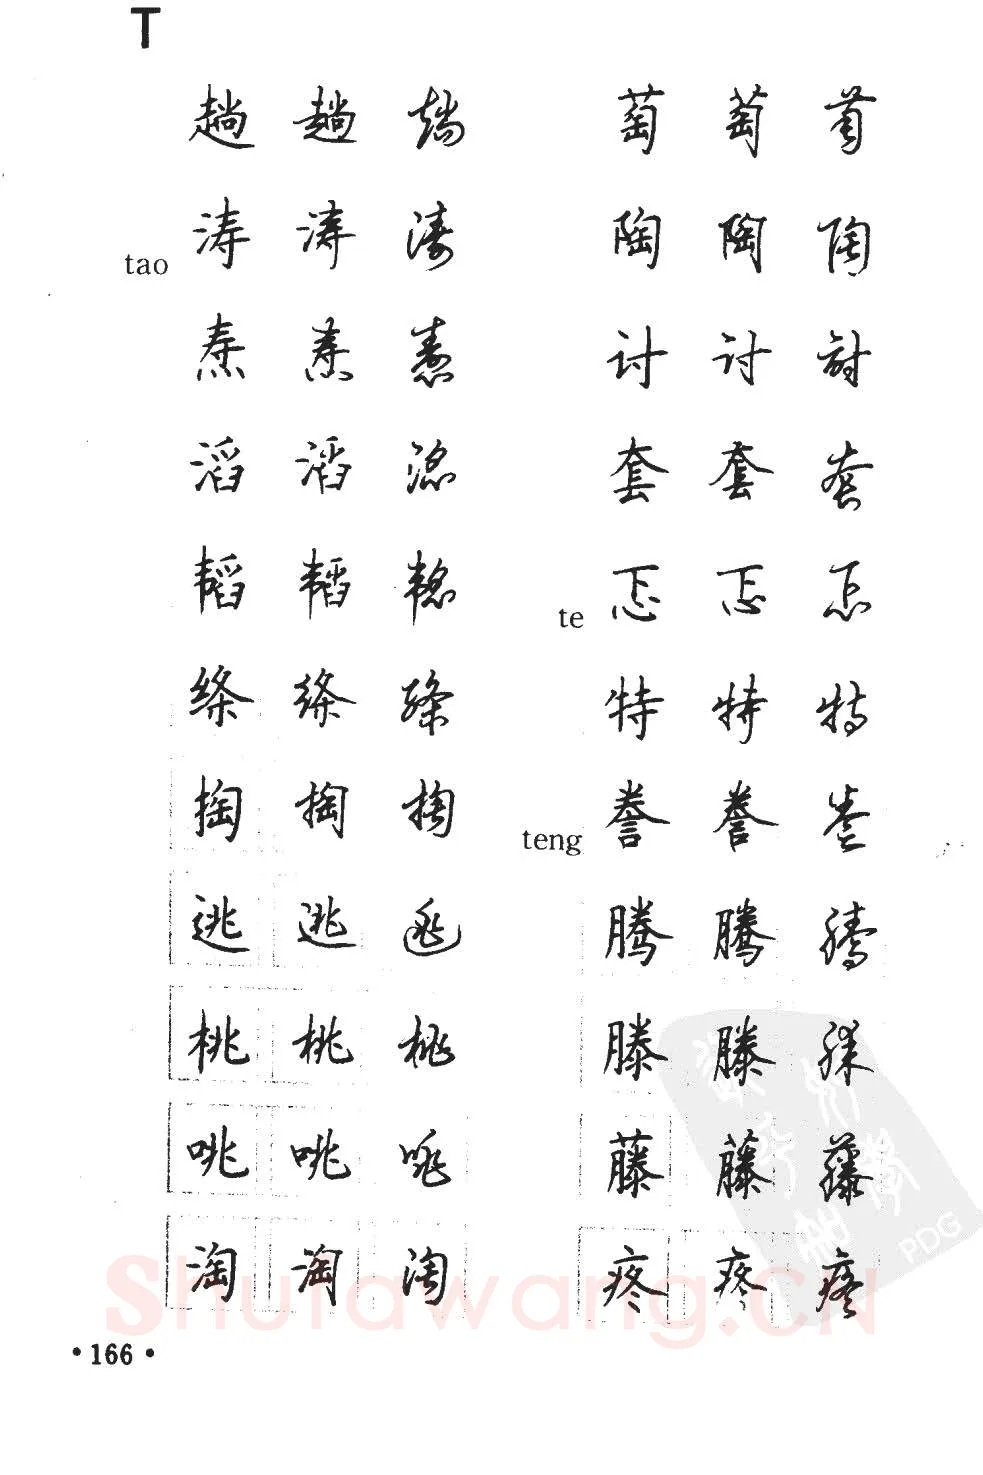 T
趟 趟 趟
tao 涛 涛 涛
焘 焘 焘
滔 滔 滔
韬 韬 韬
绦 绦 绦
掏 掏 掏
逃 逃 逃
桃 桃 桃
咷 咷 咷
淘 淘 淘
萄 萄 萄
陶 陶 陶
讨 讨 討
套 套 套
te 忑 忑 忑
特 特 特
teng 誊 誊 誊
腾 腾 腾
滕 滕 滕
藤 藤 藤
疼 疼 疼
Shufawang.CN
PDG
·166·